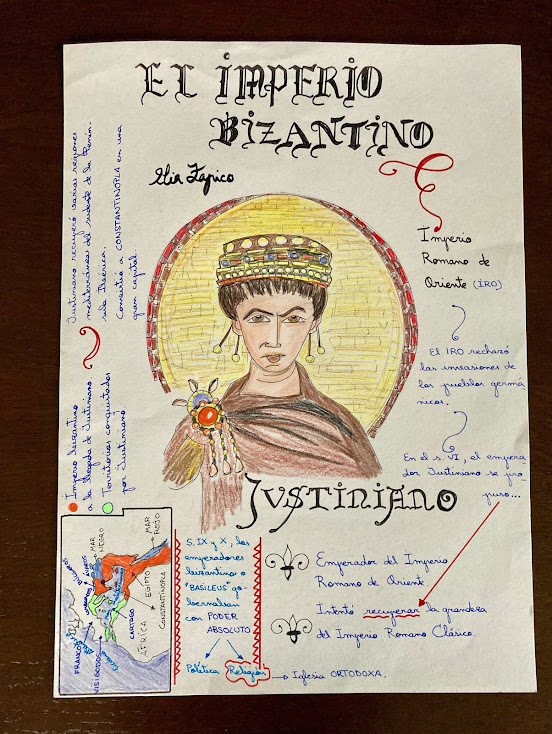 EL IMPERIO
BIZANTINO
Imperio
Romano de
Oriente (IRO)
El IRO rechazó
las invasiones de
los pueblos germá
nicos.
En el s. VI, el empera
dor Justiniano se pro
puso...
JUSTINIANO
Emperador del Imperio
Romano de Oriente
Intentó recuperar la grandeza
del Imperio Romano Clásico.
Justiniano recuperó varias regiones
mediterráneas del sudeste de la Penín-
sula Ibérica.
Convirtió a CONSTANTINOPLA en una
gran capital.
Imperio bizantino
a la llegada de Justiniano
Territorios conquistados
por Justiniano
S. IX y X, los
emperadores
bizantino o
"BASILEUS" go-
bernaban
con PODER
ABSOLUTO
Política Religión
Iglesia ORTODOXA.
MAR
NEGRO
MAR
ROJO
EGIPTO
CONSTANTINOPLA
ÁFRICA
CARTAGO
FRANCOS
VISIGODOS